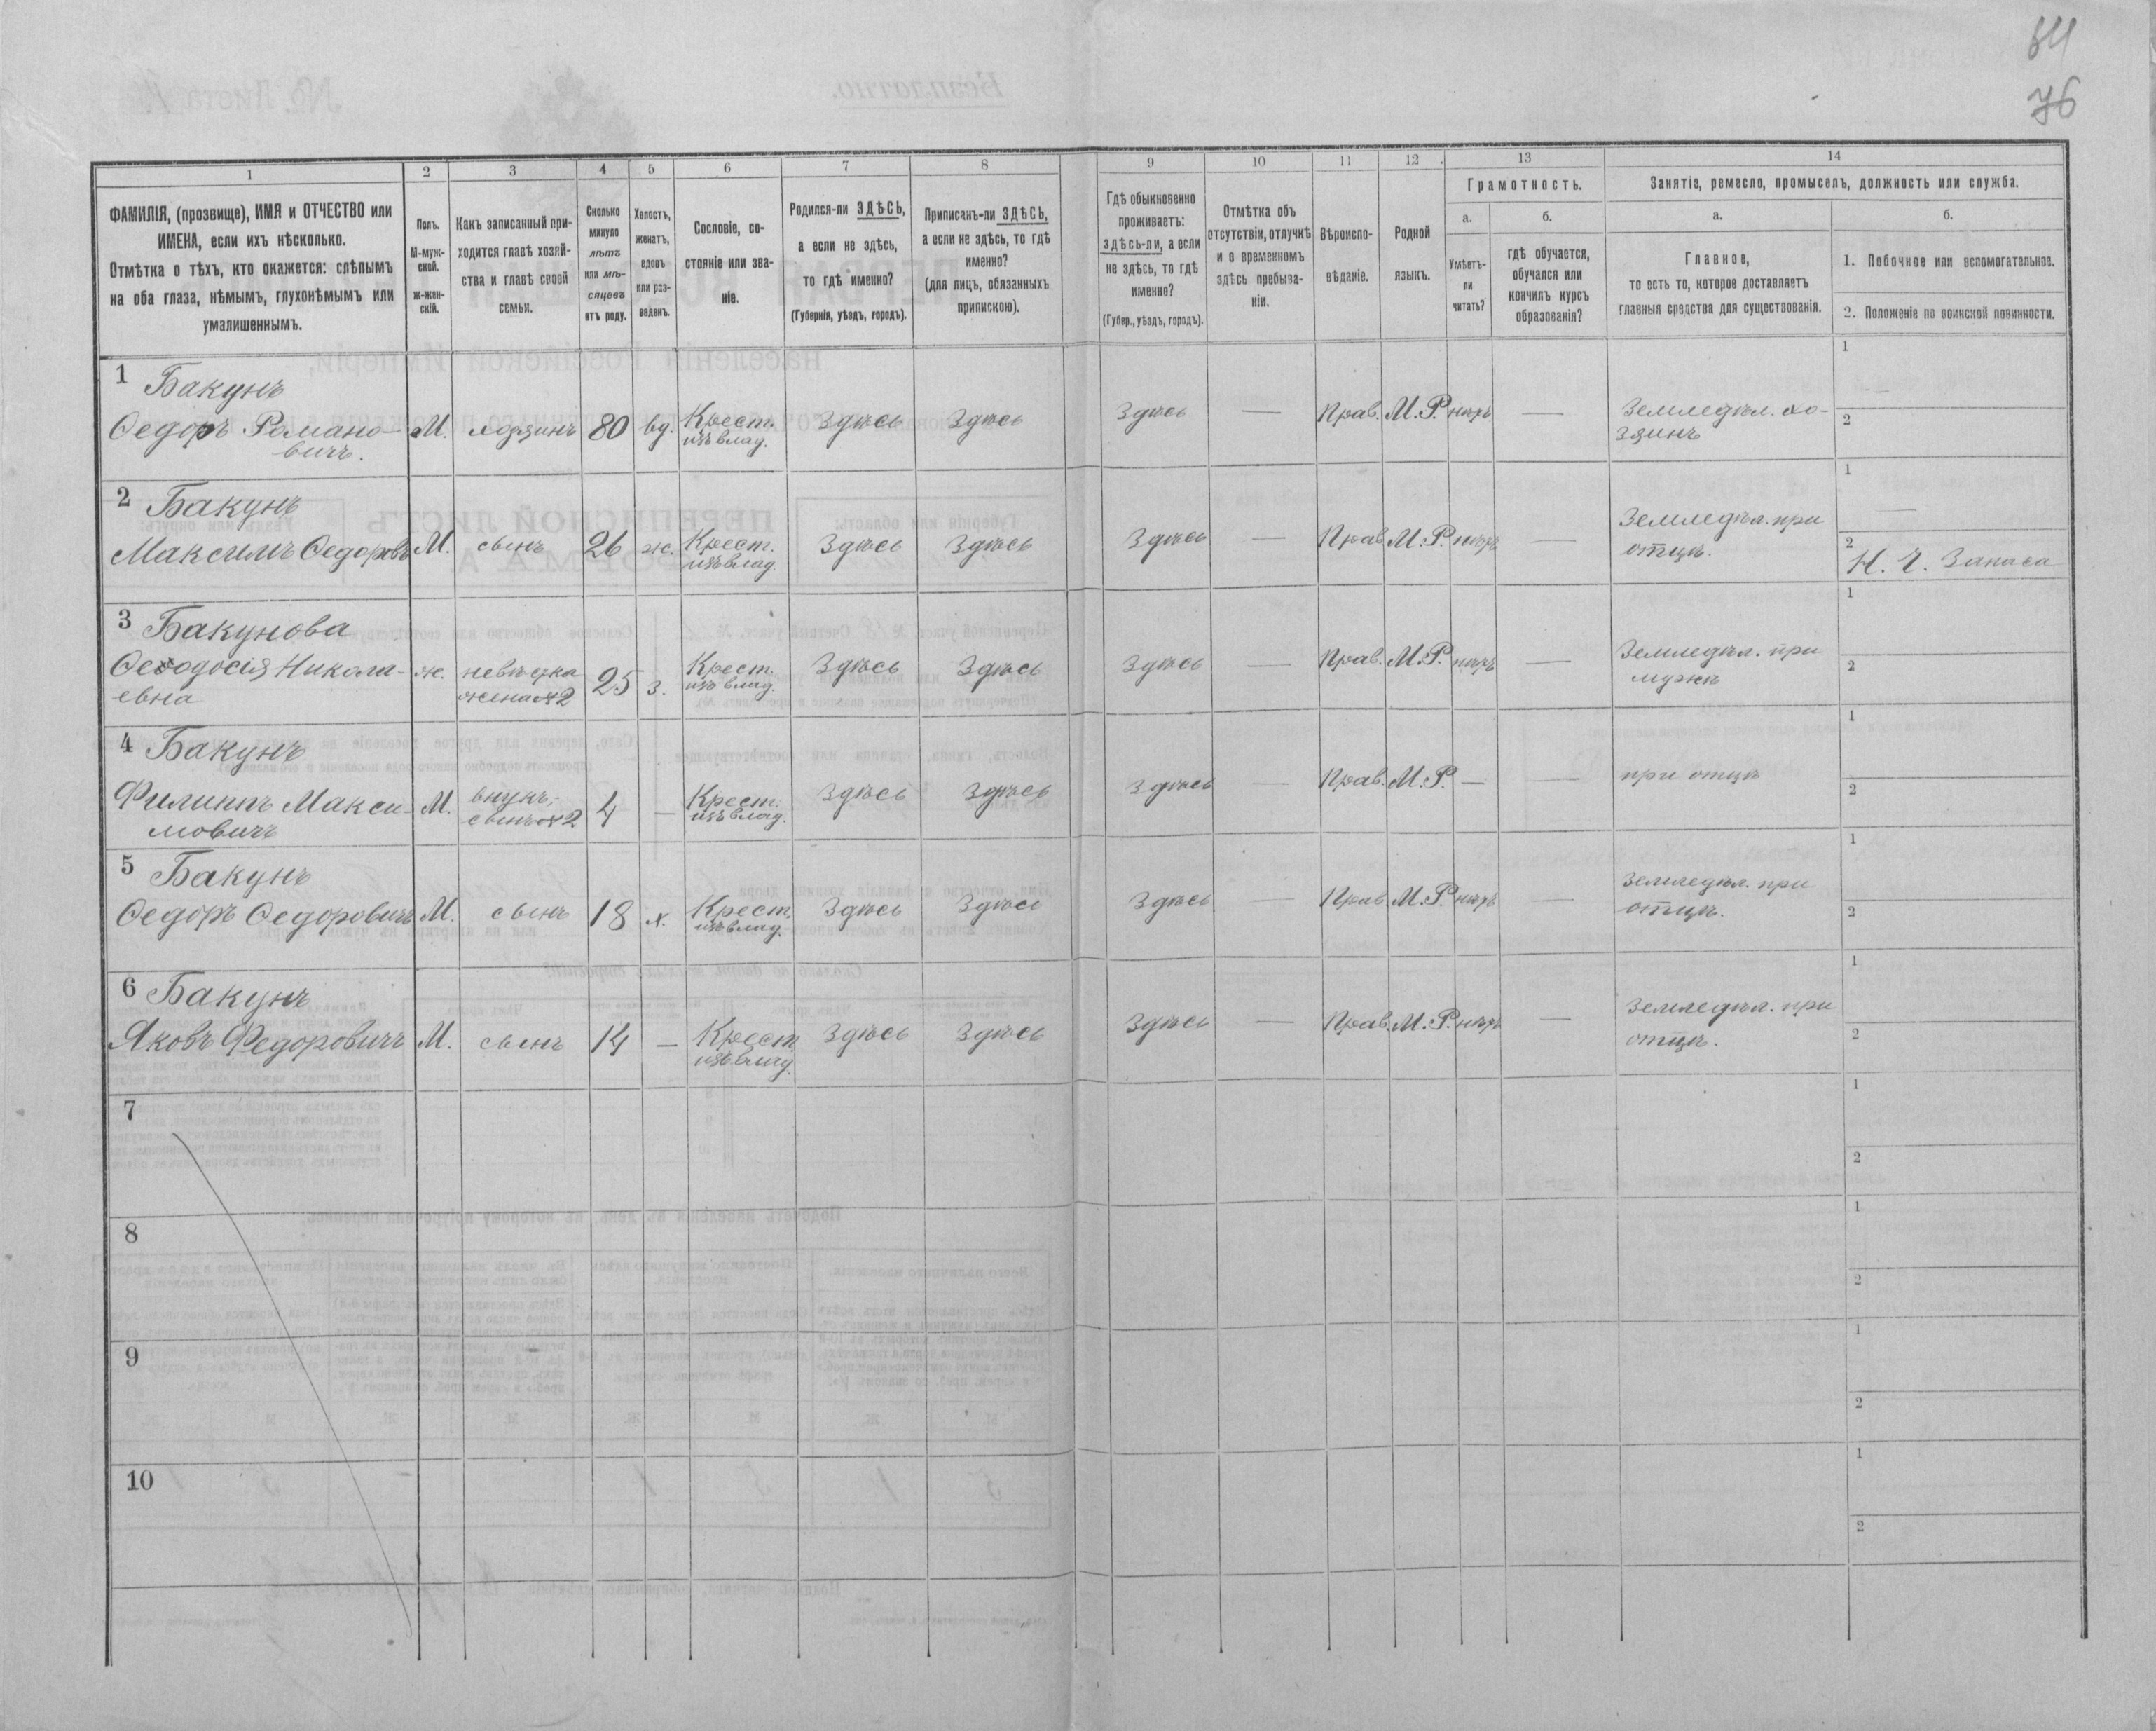 64
76
1
2
3
4
5
6
7
8
9
10
11
12
13
14
ФАМИЛІЯ, (прозвище), ИМЯ и ОТЧЕСТВО или
ИМЕНА, если ихъ нѣсколько.
Отмѣтка о тѣхъ, кто окажется: слѣпымъ
на оба глаза, нѣмымъ, глухонѣмымъ или
умалишеннымъ.
Полъ.
М-муж-
ской.
ж-жен-
скій.
Какъ записанный при-
ходится главѣ хозяй-
ства и главѣ своей
семьи.
Сколько
минуло
лѣтъ
или мѣ-
сяцевъ
отъ роду.
Холостъ,
женатъ,
вдовъ
или раз-
веденъ.
Сословіе, со-
стояніе или зва-
ніе.
Родился-ли ЗДѢСЬ,
а если не здѣсь,
то гдѣ именно?
(Губернія, уѣздъ, городъ).
Приписанъ-ли ЗДѢСЬ,
а если не здѣсь, то гдѣ
именно?
(для лицъ, обязанныхъ
припискою).
Гдѣ обыкновенно
проживаетъ:
здѣсь-ли, а если
не здѣсь, то гдѣ
именно?
(Губер., уѣздъ, городъ).
Отмѣтка объ
отсутствіи, отлучкѣ
и о временномъ
здѣсь пребыва-
ніи.
Вѣроиспо-
вѣданіе.
Родной
языкъ.
Грамотность.
а.
Умѣетъ-
ли
читать?
б.
гдѣ обучается,
обучался или
кончилъ курсъ
образованія?
Занятіе, ремесло, промыселъ, должность или служба.
а.
Главное,
то есть то, которое доставляетъ
главныя средства для существованія.
б.
1. Побочное или вспомогательное.
2. Положеніе по воинской повинности.
1 Бакунъ
Ѳедоръ Романо-
вичъ.
М.
хозяинъ
80
вд.
Крест.
изъ влад.
Здѣсь
Здѣсь
Здѣсь
—
Прав.
М.Р.
нѣтъ
—
Земледѣл. хо-
зяинъ
1 —
2
2 Бакунъ
Максимъ Ѳедоровъ
М.
сынъ
26
ж.
Крест.
изъ влад.
Здѣсь
Здѣсь
Здѣсь
—
Прав.
М.Р.
нѣтъ
—
Земледѣл. при
отцѣ.
1 —
2 Н. Ч. Запаса
3 Бакунова
Ѳеодосія Никола-
евна
ж.
невѣстка
жена №2
25
з.
Крест.
изъ влад.
Здѣсь
Здѣсь
Здѣсь
—
Прав.
М.Р.
нѣтъ
—
Земледѣл. при
мужѣ
1
2
4 Бакунъ
Филиппъ Макси-
мовичъ
М.
внукъ,
сынъ №2
4
—
Крест.
изъ влад.
Здѣсь
Здѣсь
Здѣсь
—
Прав.
М.Р.
—
—
при отцѣ
1
2
5 Бакунъ
Ѳедоръ Ѳедоровичъ
М.
сынъ
18
х.
Крест.
изъ влад.
Здѣсь
Здѣсь
Здѣсь
—
Прав.
М.Р.
нѣтъ
—
Земледѣл. при
отцѣ.
1
2
6 Бакунъ
Яковъ Федоровичъ
М.
сынъ
14
—
Крест.
изъ влад.
Здѣсь
Здѣсь
Здѣсь
—
Прав.
М.Р.
нѣтъ
—
Земледѣл. при
отцѣ.
1
2
7
1
2
8
1
2
9
1
2
10
1
2